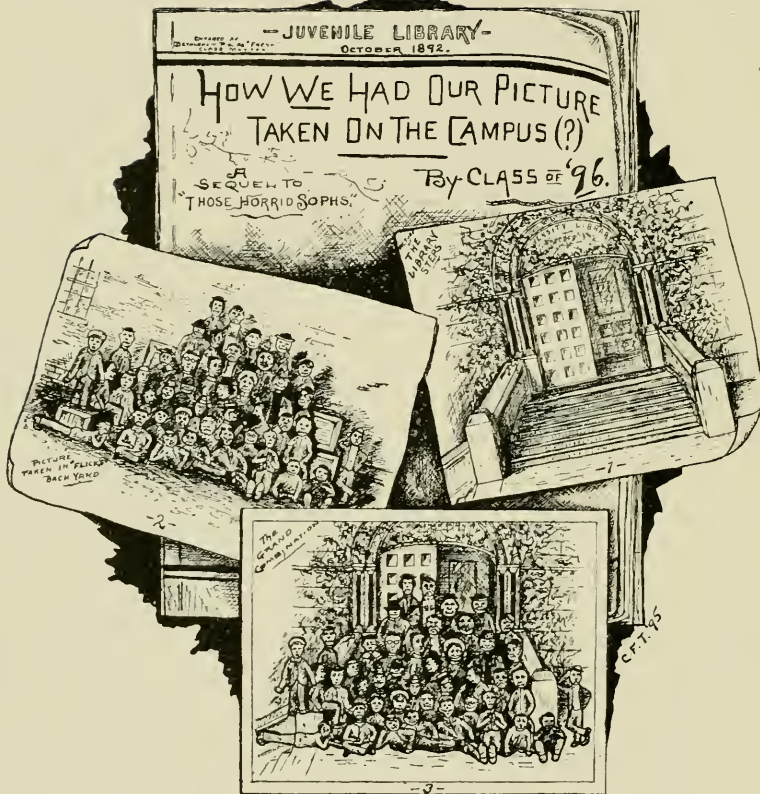 -JUVENILE LIBRARY-
OCTOBER 1892.
ENTERED AT
BETHLEHEM PA. AS FIRST
CLASS MATTER
HOW WE HAD OUR PICTURE
TAKEN ON THE CAMPUS (?)
A
SEQUEL TO
"THOSE HORRID SOPHS."
BY CLASS OF '96.
THE
LIBRARY
STEPS
-1-
PICTURE
TAKEN IN "FLICK'S"
BACK YARD
-2-
THE
GRAND
COMBINATION
-3-
C.F.T. '95